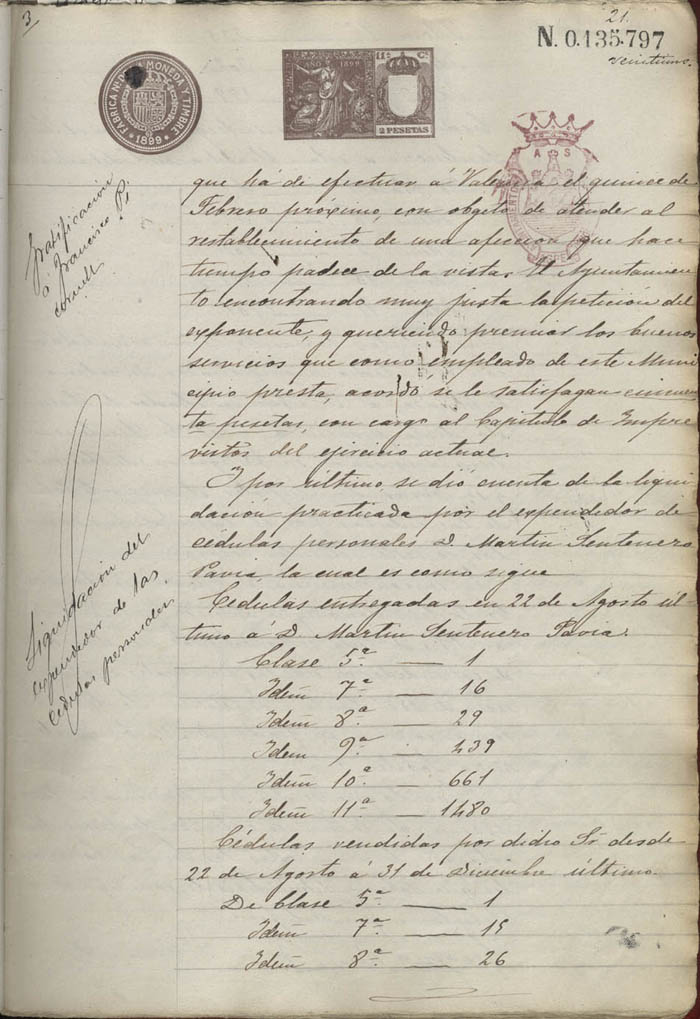 3
21.
N. 0.135.797
veintiuno.
FABRICA N. DE MONEDA Y TIMBRE
1899
11ª C.
1899
2 PESETAS
A S
Gratificacion
á Francisco Pi
cornell
que há de efectuar á Valencia el quince de
Febrero próximo, con objeto de atender al
restablecimiento de una afeccion que hace
tiempo padece de la vista. El Ayuntamien
to encontrando muy justa la petición del
exponente, y queriendo premiar los buenos
servicios que como empleado de este Muni
cipio presta, acordó se le satisfagan cincuen
ta pesetas, con cargo al Capitulo de Impre
vistos del ejercicio actual.
Liquidacion del
expendedor de las
cédulas personales.
Y por último, se dió cuenta de la liqui
dación practicada por el expendedor de
cédulas personales D. Martin Sentenero
Pavia, la cual es como sigue
Cédulas entregadas en 22 de Agosto úl
timo á D. Martin Sentenero Pavia.
Clase 5ª. — 1
Idem 7ª. — 16
Idem 8ª — 29
Idem 9ª. — 439
Idem 10ª. — 661
Idem 11ª — 1480
Cédulas vendidas por dicho Sr. desde
22 de Agosto á 31 de Diciembre último.
De Clase 5ª. — 1
Idem 7ª — 15
Idem 8ª. — 26